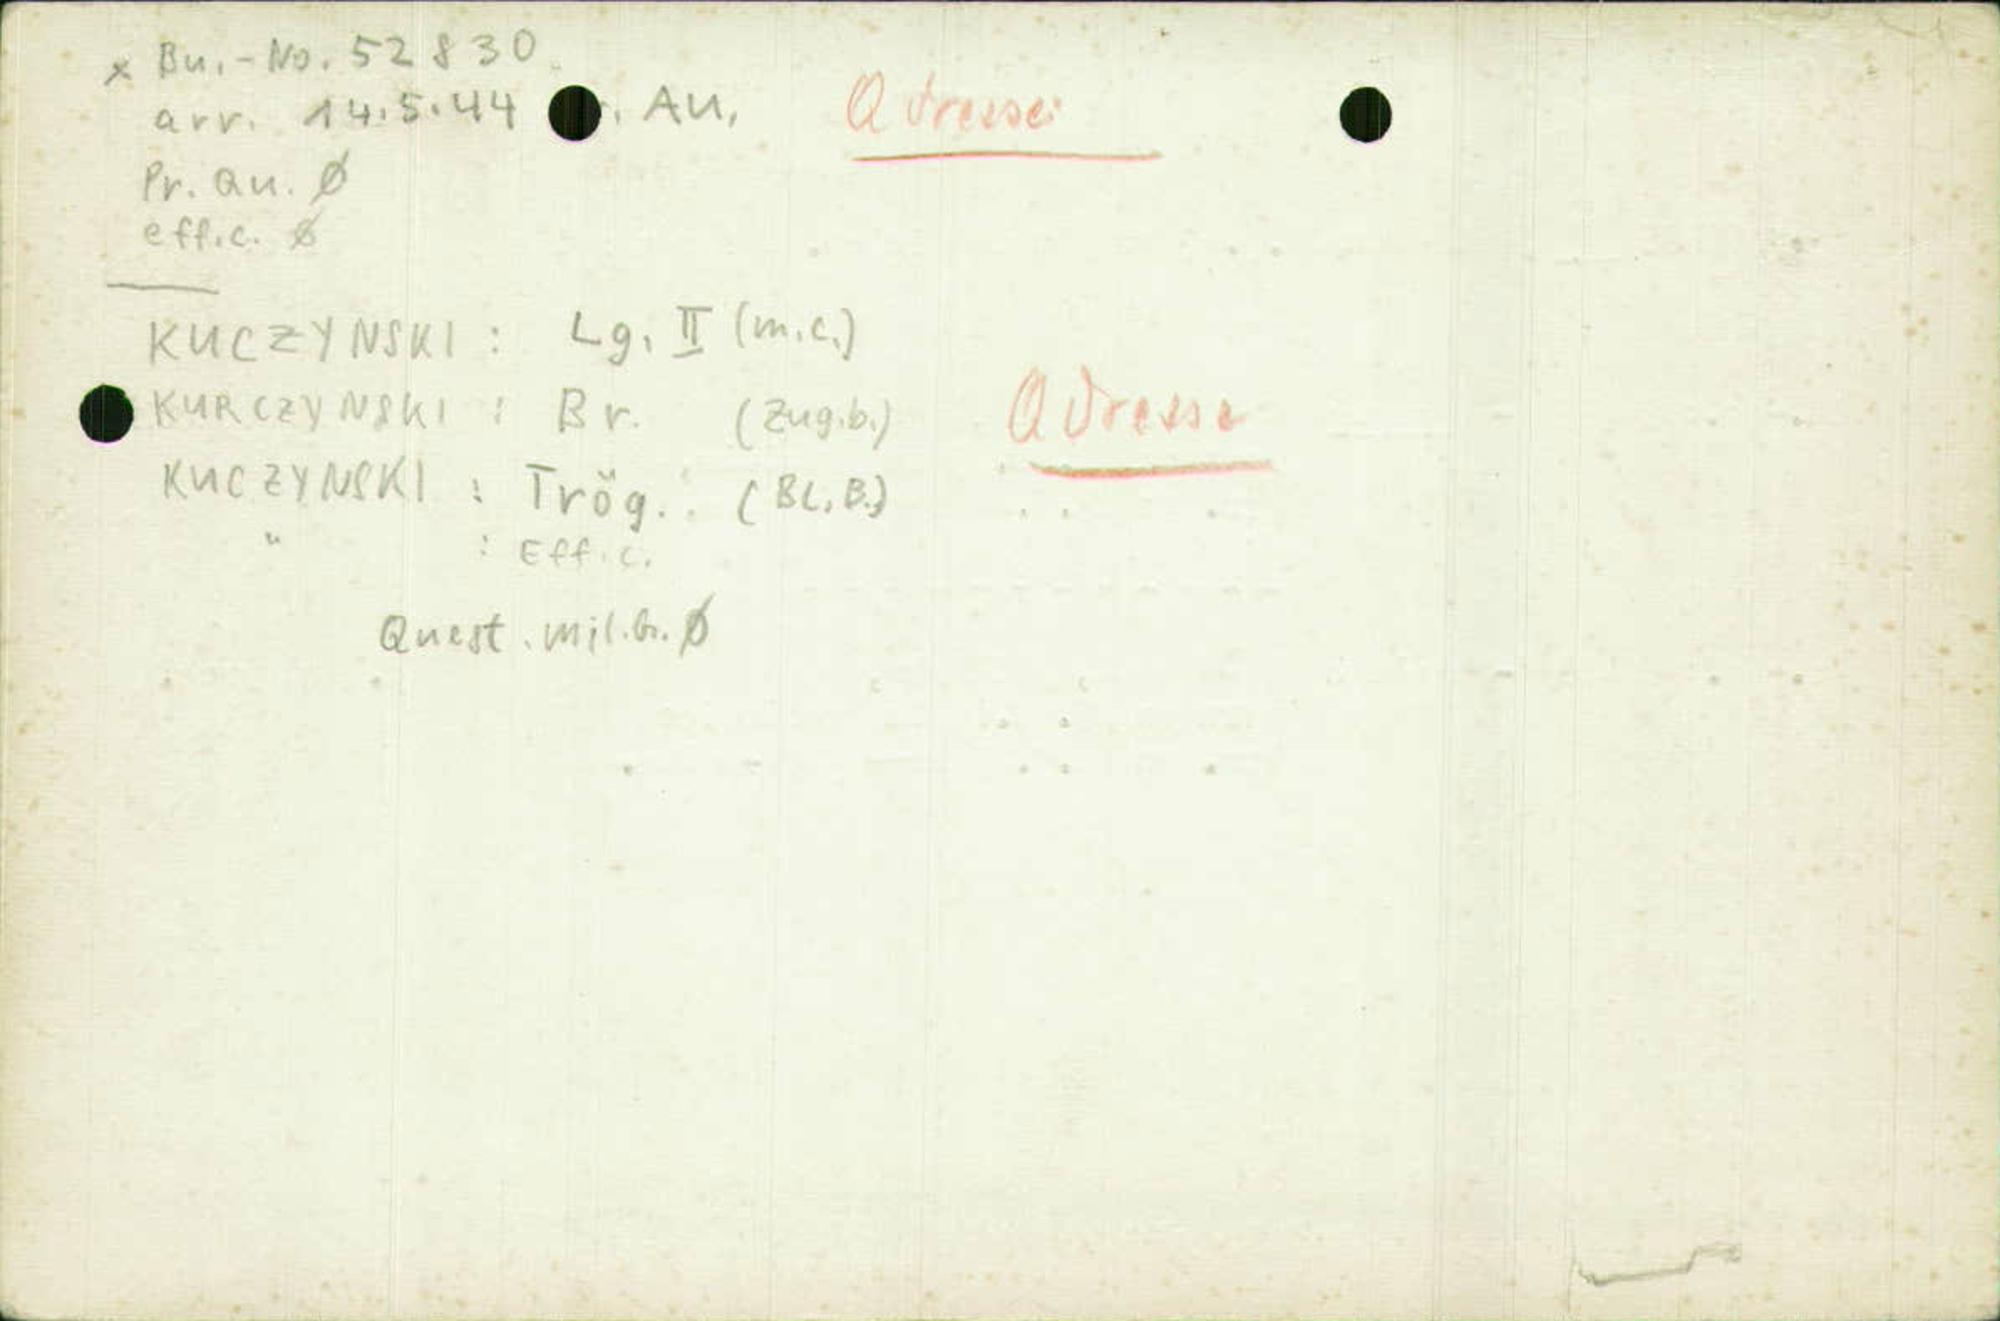 x Bu.-No. 52830
arr. 14.5.44 . Au. Adresse:
Pr. Qu. Ø
eff.c. Ø
KUCZYNSKI : Lg. II (m.c.)
KURCZYNSKI : Br. (Zug.b.) Adresse
KUCZYNSKI : Trög. (BL.B.)
" : Eff.c.
Quest. mil.b. Ø